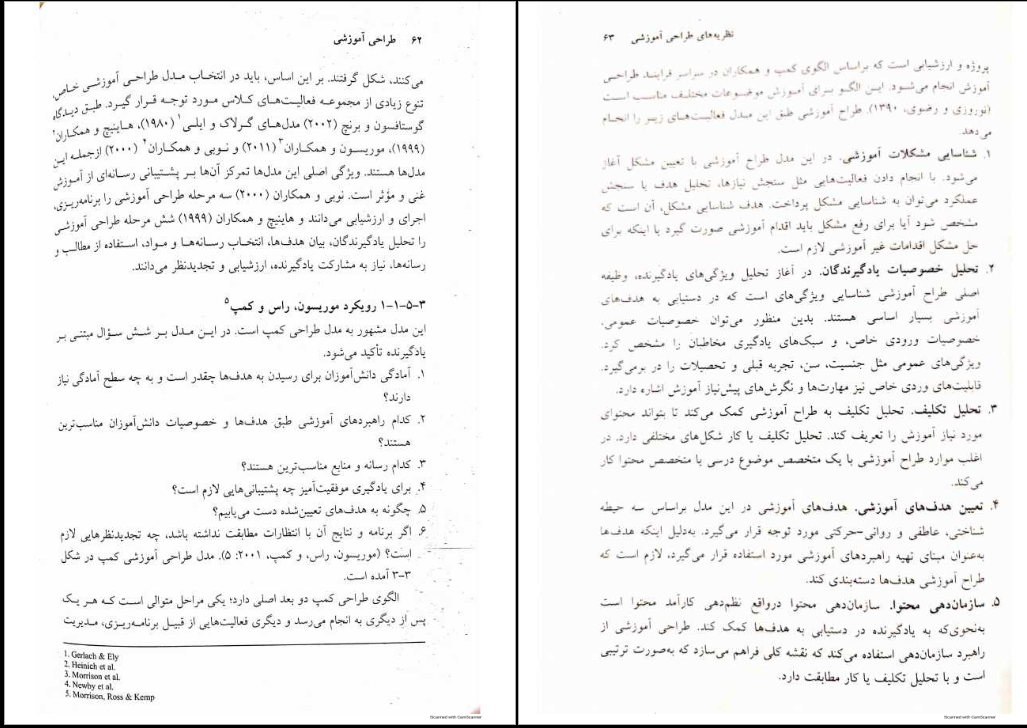 ۶۲ طراحی آموزشی
می‌کنند، شکل گرفتند. بر این اساس، باید در انتخـاب مـدل طراحـی آموزشـی خـاص،
تنوع زیادی از مجموعـه فعالیـت‌هـای کـلاس مـورد توجـه قـرار گیـرد. طبـق دیـدگاه
گوستافسون و برنچ (۲۰۰۲) مدل‌هـای گـرلاک و ایلـی۱ (۱۹۸۰)، هـاینیچ و همکـاران۲
(۱۹۹۹)، موریسـون و همکـاران۳ (۲۰۱۱) و نـوبی و همکـاران۴ (۲۰۰۰) ازجملـه ایـن
مدل‌ها هستند. ویژگی اصلی این مدل‌ها تمرکز آن‌ها بـر پشـتیبانی رسـانه‌ای از آمـوزش
غنی و مؤثر است. نوبی و همکاران (۲۰۰۰) سه مرحله طراحی آموزشی را برنامه‌ریـزی،
اجرای و ارزشیابی می‌دانند و هاینیچ و همکاران (۱۹۹۹) شش مرحله طراحی آموزشـی
را تحلیل یادگیرندگان، بیان هدف‌ها، انتخـاب رسـانه‌هـا و مـواد، اسـتفاده از مطالـب و
رسانه‌ها، نیاز به مشارکت یادگیرنده، ارزشیابی و تجدیدنظر می‌دانند.
۳-۵-۱-۱ رویکرد موریسون، راس و کمپ۵
این مدل مشهور به مدل طراحی کمپ است. در ایـن مـدل بـر شـش سـؤال مبتنـی بـر
یادگیرنده تأکید می‌شود.
۱. آمادگی دانش‌آموزان برای رسیدن به هدف‌ها چقدر است و به چه سطح آمادگی نیاز
دارند؟
۲. کدام راهبردهای آموزشی طبق هدف‌ها و خصوصیات دانش‌آموزان مناسب‌ترین
هستند؟
۳. کدام رسانه و منابع مناسب‌ترین هستند؟
۴. برای یادگیری موفقیت‌آمیز چه پشتیبانی‌هایی لازم است؟
۵. چگونه به هدف‌های تعیین‌شده دست می‌یابیم؟
۶. اگر برنامه و نتایج آن با انتظارات مطابقت نداشته باشد، چه تجدیدنظرهایی لازم
است؟ (موریسون، راس، و کمپ، ۲۰۰۱: ۵). مدل طراحی آموزشی کمپ در شکل
۳-۳ آمده است.
الگوی طراحی کمپ دو بعد اصلی دارد؛ یکی مراحل متوالی اسـت کـه هـر یـک
پس از دیگری به انجام می‌رسد و دیگری فعالیت‌هایی از قبیـل برنامـه‌ریـزی، مـدیریت
1. Gerlach & Ely
2. Heinich et al.
3. Morrison et al.
4. Newby et al.
5. Morrison, Ross & Kemp
Scanned with CamScanner
نظریه‌های طراحی آموزشی ۶۳
پروژه و ارزشیابی است که براساس الگوی کمپ و همکاران در سراسر فراینـد طراحـی
آموزش انجام می‌شـود. ایـن الگـو بـرای آمـوزش موضـوعات مختلـف مناسـب اسـت
(نوروزی و رضوی، ۱۳۹۰). طراح آموزشی طبق این مـدل فعالیـت‌هـای زیـر را انجـام
می‌دهد.
۱. شناسایی مشکلات آموزشی. در این مدل طراح آموزشی با تعیین مشکل آغاز
می‌شود. با انجام دادن فعالیت‌هایی مثل سنجش نیازها، تحلیل هدف یا سنجش
عملکرد می‌توان به شناسایی مشکل پرداخت. هدف شناسایی مشکل، آن است که
مشخص شود آیا برای رفع مشکل باید اقدام آموزشی صورت گیرد یا اینکه برای
حل مشکل اقدامات غیر آموزشی لازم است.
۲. تحلیل خصوصیات یادگیرندگان. در آغاز تحلیل ویژگی‌های یادگیرنده، وظیفه
اصلی طراح آموزشی شناسایی ویژگی‌های است که در دستیابی به هدف‌های
آموزشی بسیار اساسی هستند. بدین منظور می‌توان خصوصیات عمومی،
خصوصیات ورودی خاص، و سبک‌های یادگیری مخاطبان را مشخص کرد.
ویژگی‌های عمومی مثل جنسیت، سن، تجربه قبلی و تحصیلات را در برمی‌گیرد.
قابلیت‌های وردی خاص نیز مهارت‌ها و نگرش‌های پیش‌نیاز آموزش اشاره دارد.
۳. تحلیل تکلیف. تحلیل تکلیف به طراح آموزشی کمک می‌کند تا بتواند محتوای
مورد نیاز آموزش را تعریف کند. تحلیل تکلیف یا کار شکل‌های مختلفی دارد. در
اغلب موارد طراح آموزشی با یک متخصص موضوع درسی یا متخصص محتوا کار
می‌کند.
۴. تعیین هدف‌های آموزشی. هدف‌های آموزشی در این مدل براساس سه حیطه
شناختی، عاطفی و روانی-حرکتی مورد توجه قرار می‌گیرد. به‌دلیل اینکه هدف‌ها
به‌عنوان مبنای تهیه راهبردهای آموزشی مورد استفاده قرار می‌گیرد، لازم است که
طراح آموزشی هدف‌ها دسته‌بندی کند.
۵. سازمان‌دهی محتوا. سازمان‌دهی محتوا درواقع نظم‌دهی کارآمد محتوا است
به‌نحوی‌که به یادگیرنده در دستیابی به هدف‌ها کمک کند. طراحی آموزشی از
راهبرد سازمان‌دهی استفاده می‌کند که نقشه کلی فراهم می‌سازد که به‌صورت ترتیبی
است و با تحلیل تکلیف یا کار مطابقت دارد.
Scanned with CamScanner